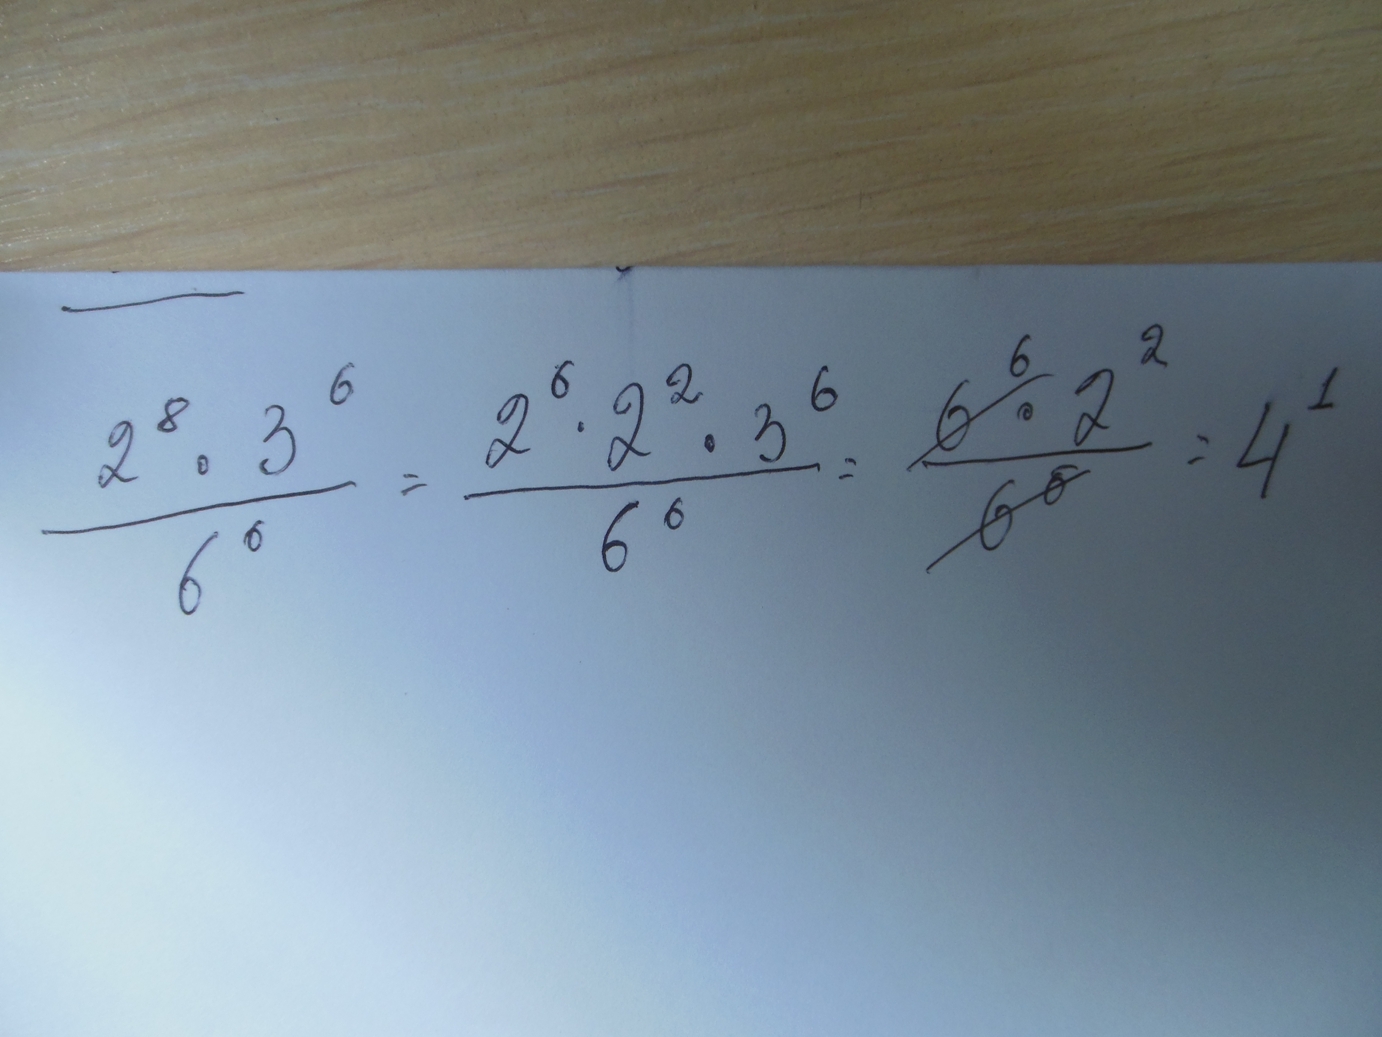 2⁸ · 3⁶ / 6⁶ = 2⁶ · 2² · 3⁶ / 6⁶ = 6⁶ · 2² / 6⁶ = 4¹